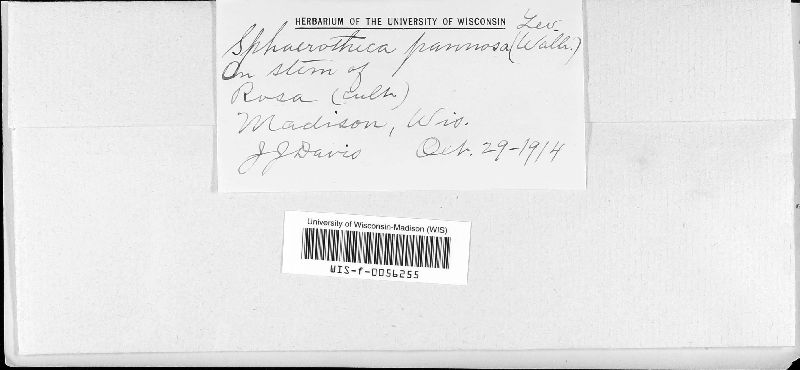 HERBARIUM OF THE UNIVERSITY OF WISCONSIN
Sphaerotheca pannosa (Wallr.) Lev.
On stem of
Rosa (cult.)
Madison, Wis.
J J Davis Oct. 29-1914
University of Wisconsin-Madison (WIS)
WIS-f-0056255